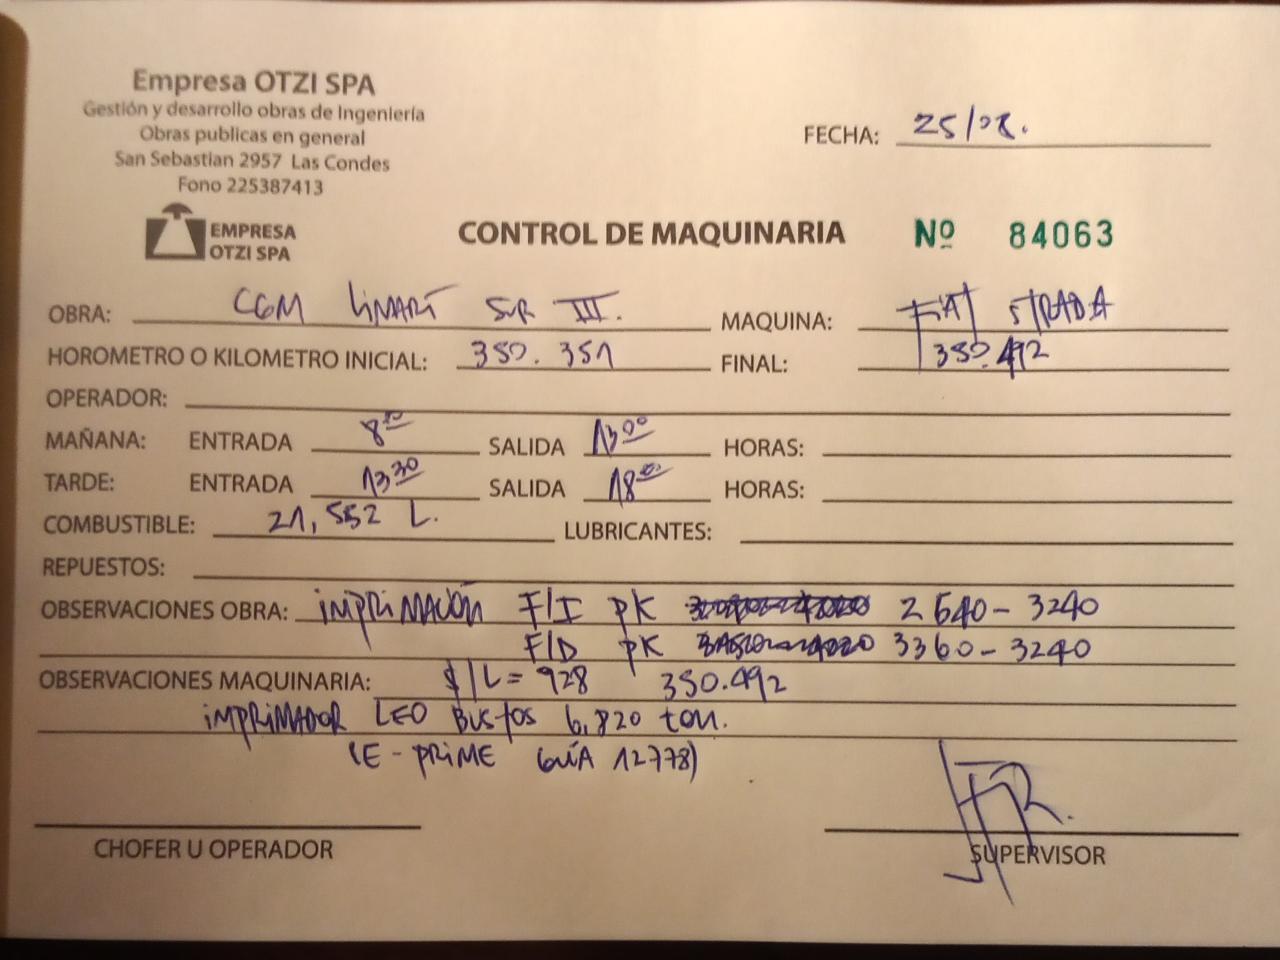 Empresa OTZI SPA
Gestión y desarrollo obras de Ingeniería
Obras publicas en general
San Sebastian 2957 Las Condes
Fono 225387413
FECHA: 25/08.
EMPRESA
OTZI SPA
CONTROL DE MAQUINARIA Nº 84063
OBRA: CGM LiMARÍ SUR III. MAQUINA: FIAT STRADA
HOROMETRO O KILOMETRO INICIAL: 350.351 FINAL: 350.492
OPERADOR:
MAÑANA: ENTRADA 8⁰⁰ SALIDA 13⁰⁰ HORAS:
TARDE: ENTRADA 13³⁰ SALIDA 18⁰⁰ HORAS:
COMBUSTIBLE: 21,552 L. LUBRICANTES:
REPUESTOS:
OBSERVACIONES OBRA: iMPRiMACIÓN F/I PK 2640 - 3240
F/D PK 3360 - 3240
OBSERVACIONES MAQUINARIA: $/L = 928 350.492
iMPRiMADOR LEO BUSTOS 6,820 ton.
(E - PRiME GUÍA 12778)
CHOFER U OPERADOR
SUPERVISOR